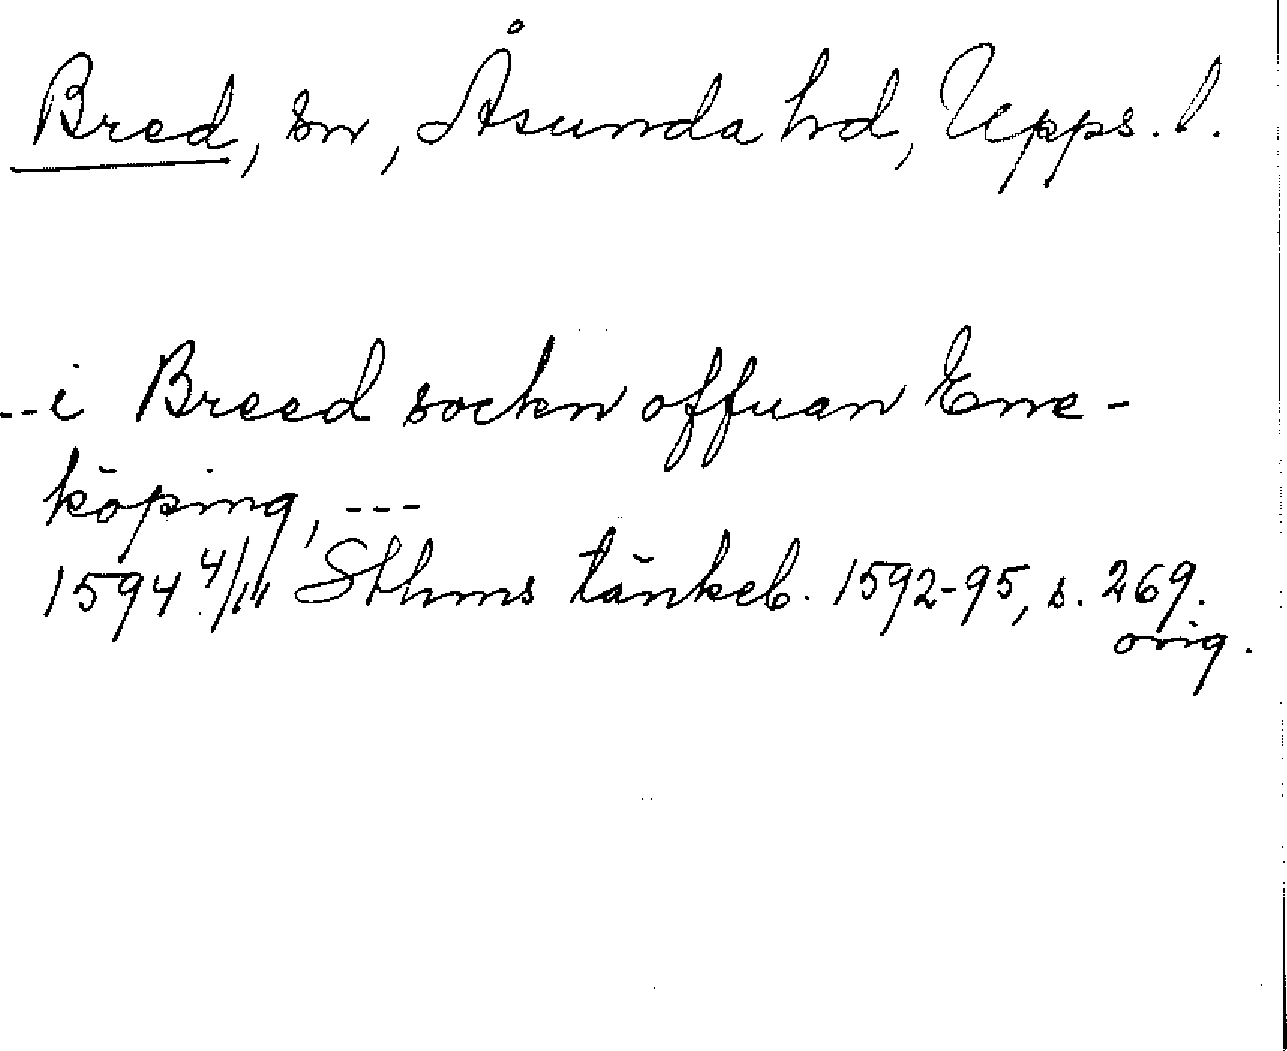 Bred, sn, Åsunda hd, Upps. l.
--i Breed sockn offuan Ene-
köping, ---
1594 4/III Sthms tänkeb. 1592-95, s. 269.
orig.